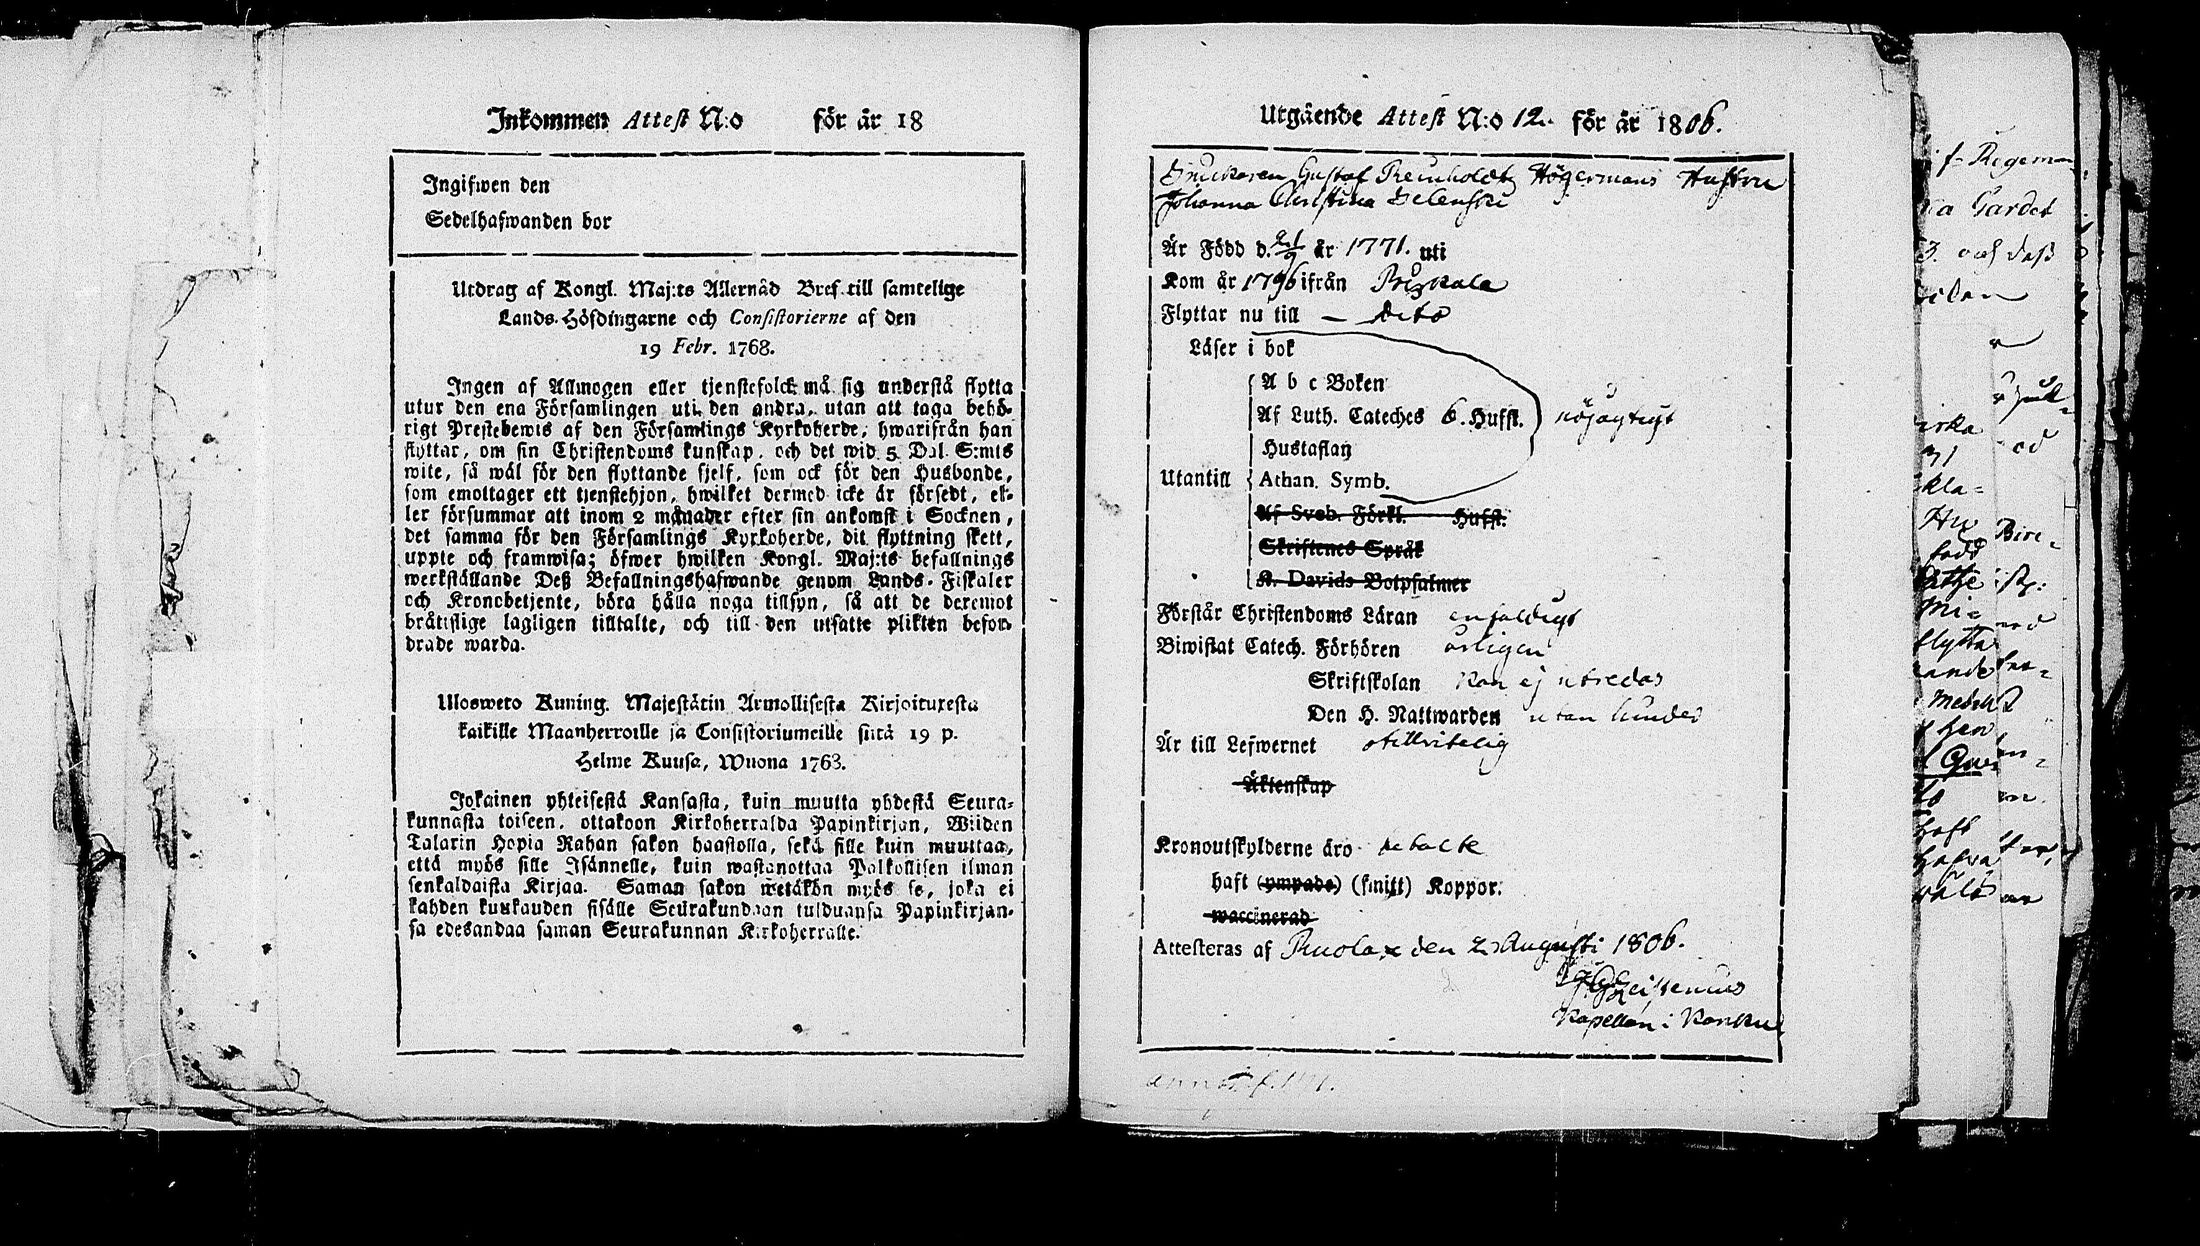 Inkommen Attest N:o för år 18
Ingifwen den
Sedelhafwanden bor
Utdrag af Kongl. Maj:ts Allernåd Bref till samtelige
Lands-Höfdingarne och Consistorierne af den
19 Febr. 1768.
Ingen af Allmogen eller tjenstefolck må sig understå flytta
utur den ena Församlingen uti den andra, utan att taga behö-
rigt Prestebewis af den Församlings Kyrkoherde, hwarifrån han
flyttar, om sin Christendoms kunskap, och det wid 5 Dal. S:mts
wite, så wäl för den flyttande sjelf, som ock för den Husbonde,
som emottager ett tjenstehjon, hwilket dermed icke är försedt, el-
ler försummar att inom 2 månader efter sin ankomst i Socknen,
det samma för den Församlings Kyrkoherde, dit flyttning skett,
uppte och framwisa; öfwer hwilken Kongl. Maj:ts befallnings
werkställande Deß Befallningshafwande genom Lands-Fiskaler
och Kronobetjente, böra hålla noga tillsyn, så att de deremot
bråtislige lagligen tilltalte, och till den utsatte plikten befor-
drade warda.
Ulosweto Kuning. Majestätin Armollisesta Kirjoituxesta
kaikille Maanherroille ja Consistoriumeille siitä 19 p.
Helme Kuusa, Wuona 1768.
Jokainen yhteisestä Kansasta, kuin muutta yhdestä Seura-
kunnasta toiseen, ottakoon Kirkoherralda Papinkirjan, Wiiden
Talarin Hopia Rahan sakon haastolla, sekä sille kuin muuttaa,
että myös sille Isännelle, kuin wastanottaa Palkollisen ilman
senkaldaista Kirjaa. Saman sakon wetäkön myös se, joka ei
kahden kuukauden sisälle Seurakundaan tulduansa Papinkirjan-
sa edesandaa saman Seurakunnan Kirkoherralle.
Utgående Attest N:o 12. för år 1806.
Gustaf Reinholdt Högermans Hustru
Johanna Christina
Är Född d. 21/9 år 1771. uti
Kom år 1796 ifrån Pirkala
Flyttar nu till — dito
Läser i bok
A b c Boken
Af Luth. Cateches 6. Hufst. nöjagtigt
Hustaflan
Utantill Athan. Symb.
Af Sveb. Förkl. Hufst.
Skriftenes Språk
K. Davids Botpsalmer
Förstår Christendoms Läran enfaldigt
Biwistat Catech. Förhören årligen
Skriftskolan kan ej utredas
Den H. Nattwarden
Är till Lefwernet otillvitelig
Äktenskap
Kronoutskylderne äro betalte
haft (ympade) (smitt) Koppor.
waccinerad
Attesteras af Ruolax den 2 Augusti 1806.
Kapellan i Karkku